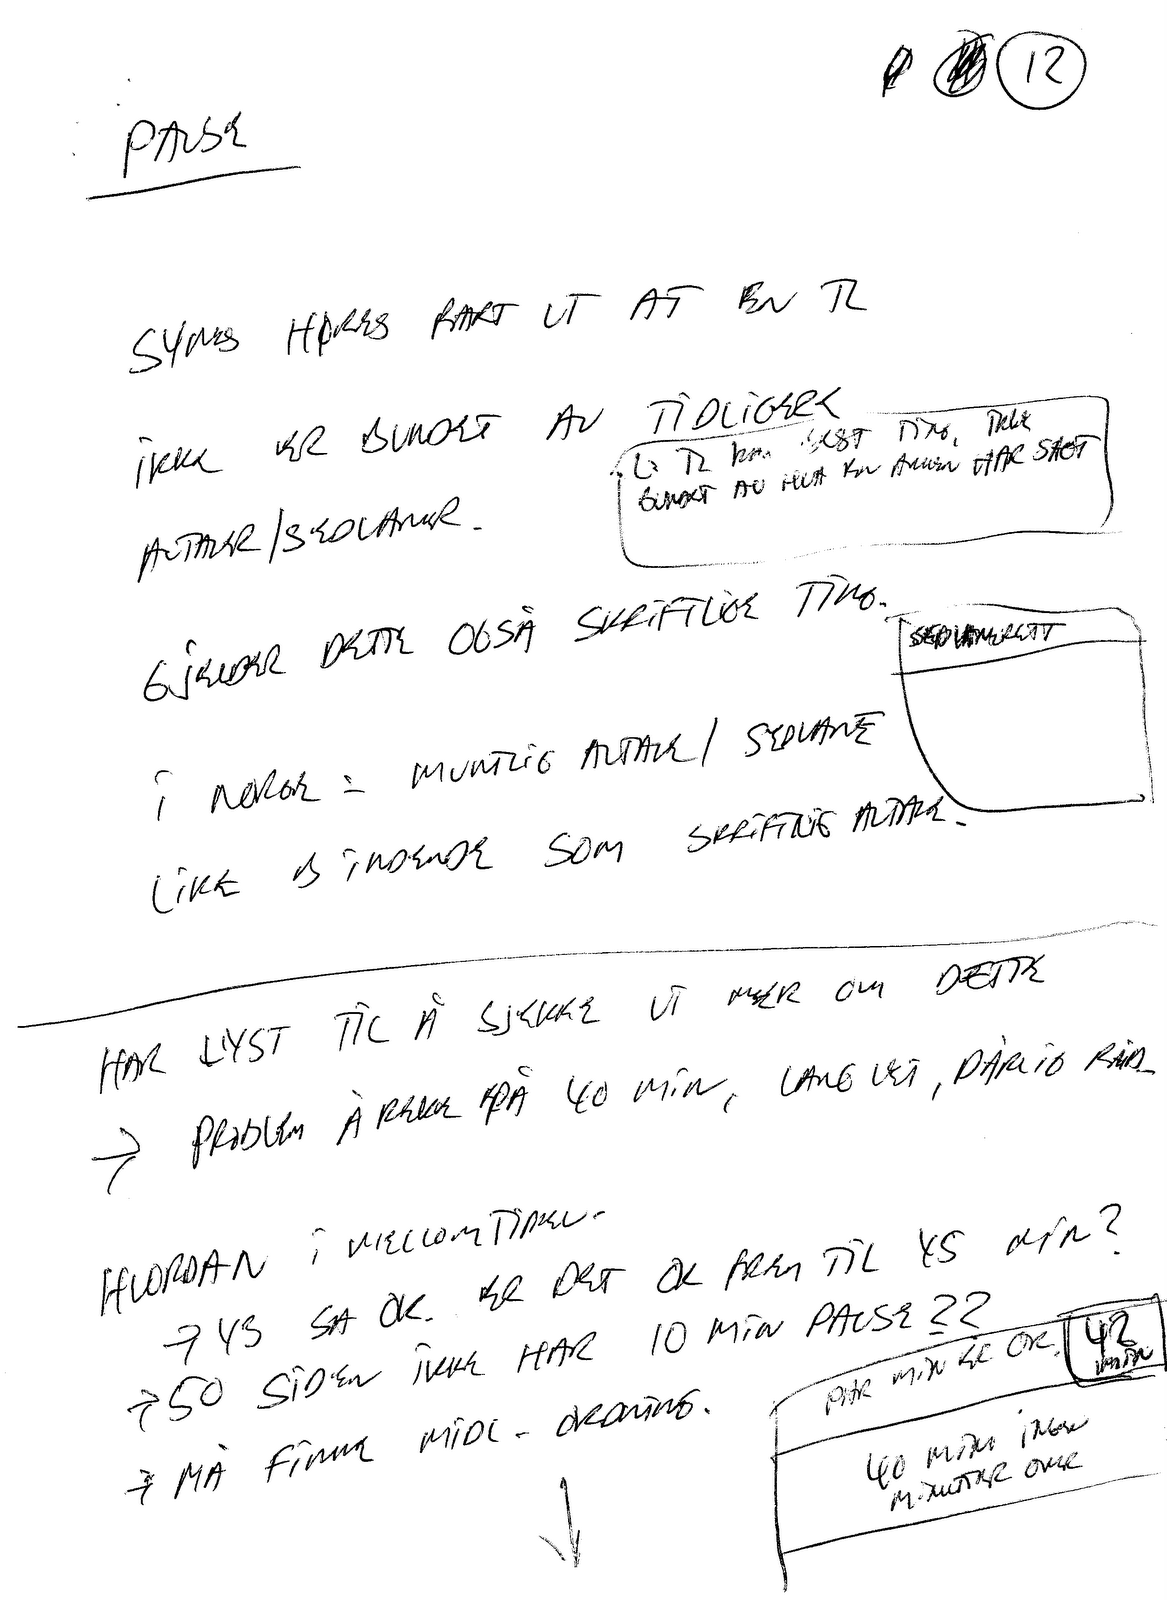 12
PAUSE
SYNES HØRES RART UT AT EN TL
IKKE ER BUNDET AV TIDLIGERE
↳ TL kan BEST TING, IKKE
BUNDET AV HVA EN ANNEN HAR SAGT
AVTALER/SEDVANER.
GJELDER DETTE OGSÅ SKRIFTLIGE TING.
SEDVANERETT
I NORGE = MUNTLIG AVTALE / SEDVANE
LIKE BINDENDE SOM SKRIFTLIG AVTALE.
HAR LYST TIL Å SJEKKE UT MER OM DETTE
→ PROBLEM Å REKKE PÅ 40 MIN, LANG VEI, DÅRLIG
HVORDAN I MELLOMTIDEN.
→ 43 SA OK. ER DET OK FREM TIL 45 MIN?
→ 50 SIDEN IKKE HAR 10 MIN PAUSE??
PAR MIN ER OK. 42 MIN
→ MÅ FINNE MIDL. ORDNING.
40 MIN INGEN
MINUTTER OVER